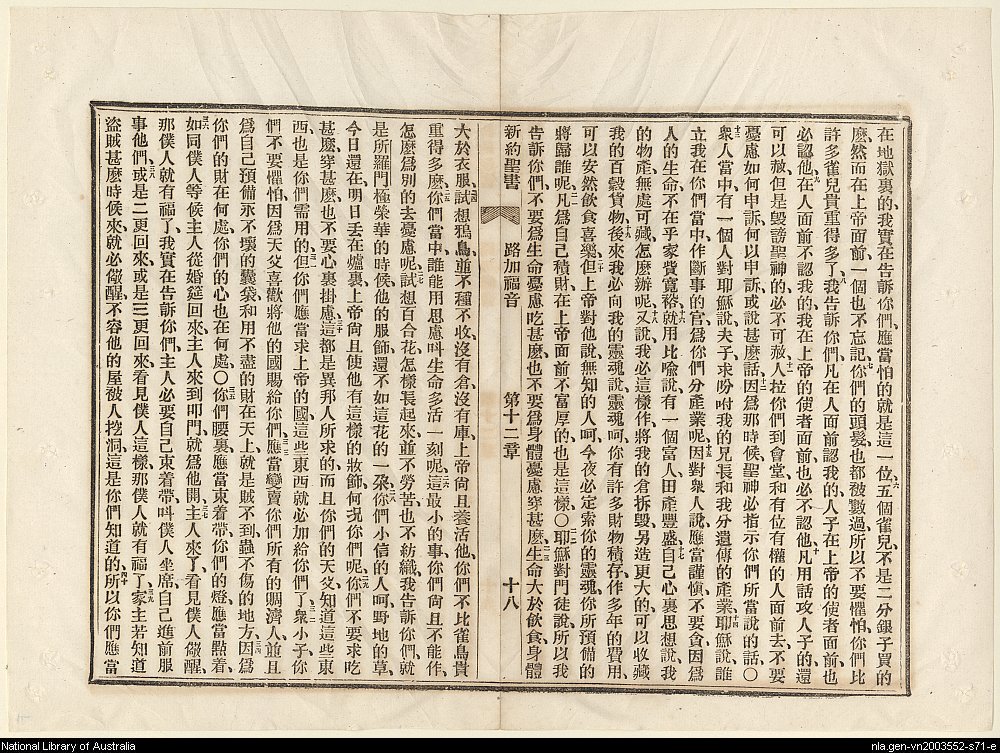 在地獄裏的我實在告訴你們、應當怕的就是這一位、五個雀兒不是二分銀子買的
麼然而在上帝面前一個也不忘記你們的頭髮也都被數過所以不要懼怕你們比
許多雀兒貴重得多了、我告訴你們凡在人面前認我的、人子在上帝的使者面前也
必認他、在人面前不認我的、我在上帝的使者面前也必不認他、凡用話攻人子的還
可以赦、但是毀謗聖神的必不可赦、人拉你們到會堂和有位有權的人面前去、不要
憂慮如何申訴、何以申訴、或說甚麼話、因爲那時候聖神必指示你們所當說的話、〇
衆人當中有一個人對耶穌說、夫子、求吩咐我的兄長和我分遺傳的產業、耶穌說、誰
立我在你們當中作斷事的官、爲你們分產業呢、因對衆人說、應當謹愼、不要貪、因爲
人的生命不在乎家貲寬裕、就用比喩說、有一個富人田產豐盛、自己心裏思想說、我
的物產無處可藏、怎麼辦呢、又說、我必這樣作、將我的倉拆毀、另造更大的、可以收藏
我的百穀貨物、後來我必向我的靈魂說、靈魂呵、你有許多財物積存、作多年的費用、
可以安然飲食喜樂、但上帝對他說、無知的人呵、今夜必定索你的靈魂、你所預備的
將歸誰呢、凡爲自己積財在上帝面前不富厚的、也是這樣〇耶穌對門徒說、所以我
告訴你們、不要爲生命憂慮吃甚麼、也不要爲身體憂慮穿甚麼、生命大於飲食、身體
新約聖書 路加福音 第十二章 十八
大於衣服、試想鴉鳥、並不種不收、沒有倉沒有庫、上帝尚且養活他、你們不比雀鳥貴
重得多麼、你們當中誰能用思慮呌生命多活一刻呢、這最小的事你們尚且不能作、
怎麼爲別的去憂慮呢、試想百合花怎樣長起來、並不勞苦、也不紡織、我告訴你們、就
是所羅門極榮華的時候、他的服飾還不如這花的一朶、你們小信的人呵、野地的草
今日還在明日丟在爐裏、上帝尚且使他有這樣的妝飾、何况你們呢、你們不要求吃
甚麼穿甚麼、也不要心裏掛慮、這都是異邦人所求的、而且你們的天父知道這些東
西也是你們需用的、但你們應當求上帝的國、這些東西就必加給你們了、衆小子你
們不要懼怕、因爲天父喜歡將他的國賜給你們、應當變賣你們所有的賙濟人、並且
爲自己預備永不壞的囊袋和用不盡的財在天上、就是賊不到蟲不傷的地方、因爲
你們的財在何處、你們的心也在何處、〇你們腰裏應當束着帶、你們的燈應當㸃着、
如同僕人等候主人從婚筵回來、主人來到叩門、就爲他開、主人來了看見僕人儆醒、
那僕人就有福了、我實在告訴你們、主人必要自己束着帶、呌僕人坐席、自己進前服
事他們、或是二更回來、或是三更回來、看見僕人這樣、那僕人就有福了、家主若知道
盜賊甚麼時候來、就必儆醒、不容他的屋被人挖洞、這是你們知道的、所以你們應當
National Library of Australia
nla.gen-vn2003552-s71-e